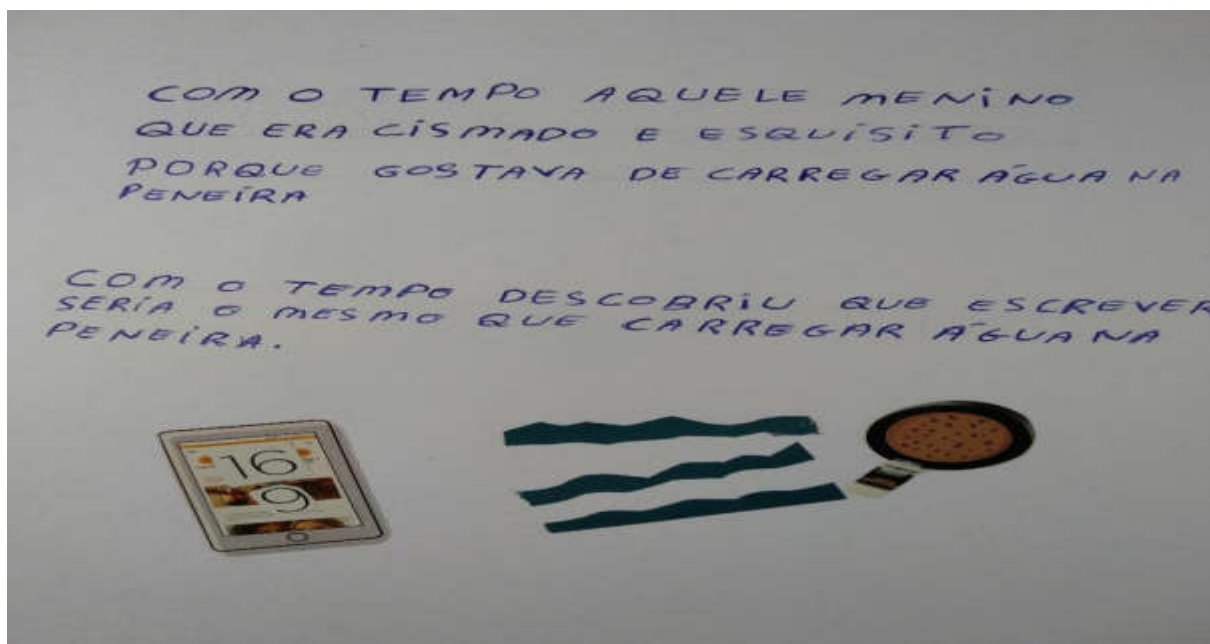 COM O TEMPO AQUELE MENINO
QUE ERA CISMADO E ESQUISITO
PORQUE GOSTAVA DE CARREGAR ÁGUA NA
PENEIRA
COM O TEMPO DESCOBRIU QUE ESCREVER
SERIA O MESMO QUE CARREGAR ÁGUA NA
PENEIRA.
16
9